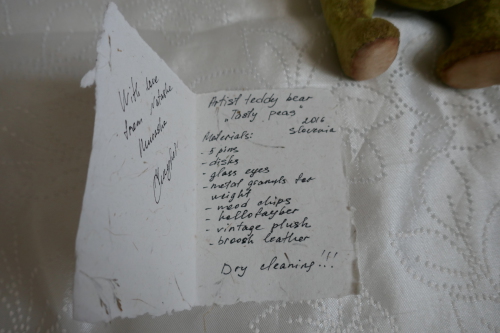 With love
from Natasha
Artist teddy bear
"Tasty peas"
2016
Slovenia
Materials:
- 5 pins
- disks
- glass eyes
- metal granuls for
weight
- wood chips
- hollofayber
- vintage plush
- broosh leather
Dry cleaning!!!